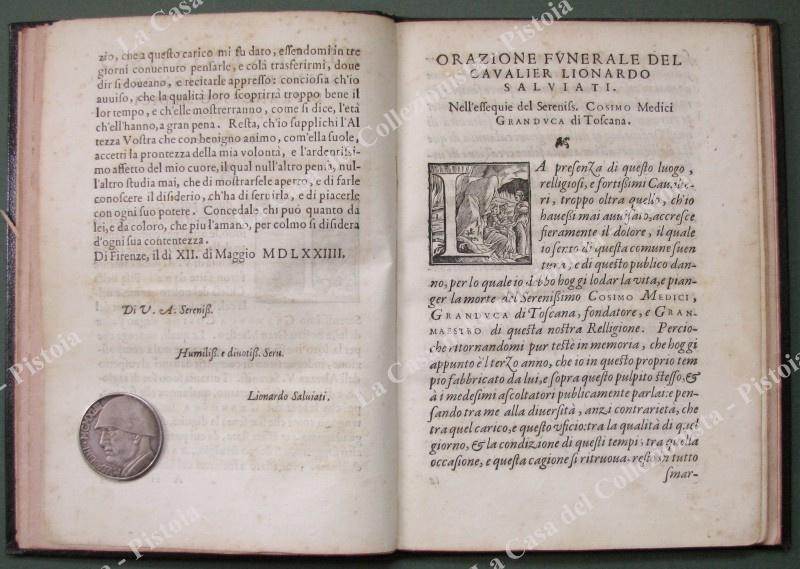 zio, che a questo carico mi fu dato, essendomi in tre
giorni conuenuto pensarle, e colà trasferirmi, doue
dir si doueano, e recitarle appresso: conciosia ch'io
auuiso, che la qualità loro scoprirrà troppo bene il
lor tempo, e ch'elle mostrerranno, come si dice, l'età
ch'ell'hanno, a gran pena. Resta, ch'io supplichi l'Al
tezza Vostra che con benigno animo, com'ella suole,
accetti la prontezza della mia volontà, e l'ardentissi
mo affetto del mio cuore, il qual null'altro pensa, nul-
l'altro studia mai, che di mostrarsele aperto, e di farle
conoscere il disiderio, ch'ha di seruirla, e di piacerle
con ogni suo potere. Concedale chi può quanto da
lei, e da coloro, che piu l'amano, per colmo si disidera
d'ogni sua contentezza.
Di Firenze, il dì XII. di Maggio MDLXXIIII.
Di V. A. Sereniss.
Humiliss. e diuotiss. Seru.
Lionardo Saluiati.
ORAZIONE FVNERALE DEL
CAVALIER LIONARDO
SALVIATI.
Nell'essequie del Sereniss. COSIMO Medici
GRANDVCA di Toscana.
LA presenza di questo luogo,
relligiosi, e fortissimi Caualie-
ri, troppo oltra quello, ch'io
hauessi mai auuisato, accresce
fieramente il dolore, il quale
io sento di questa comune suen
tura, e di questo publico dan-
no, per lo quale io debbo hoggi lodar la vita, e pian-
ger la morte del Serenissimo COSIMO MEDICI,
GRANDVCA di Toscana, fondatore, e GRAN-
MAESTRO di questa nostra Relligione. Percio-
che ritornandomi pur testè in memoria, che hoggi
appunto è'l terzo anno, che io in questo proprio tem
pio fabbricato da lui, e sopra questo pulpito stesso, &
à i medesimi ascoltatori publicamente parlai: e pen-
sando tra me alla diuersità, anzi contrarietà, che
tra quel carico, e questo vficio: tra la qualità di quel
giorno, & la condizione di questi tempi: tra quella
occasione, e questa cagione si ritruoua: resto in tutto
smar-
La Casa del Collezionista - Pistoia